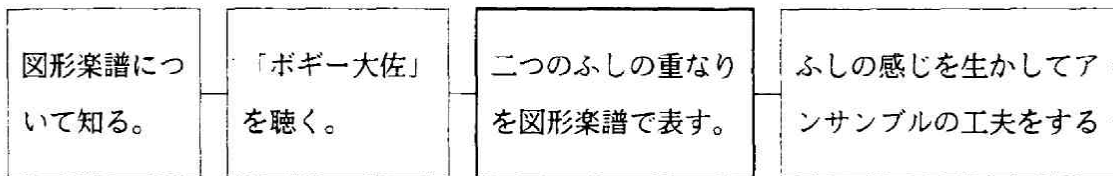 図形楽譜につ
いて知る。
「ボギー大佐」
を聴く。
二つのふしの重なり
を図形楽譜で表す。
ふしの感じを生かしてア
ンサンブルの工夫をする